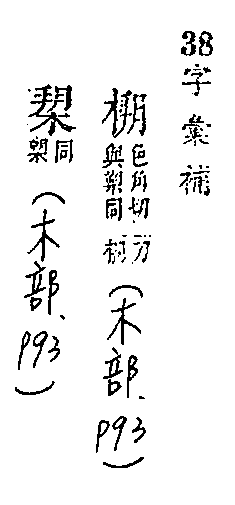 38字彙補
色角切
與槊同
(木部、P93)
同槊
(木部、P93)